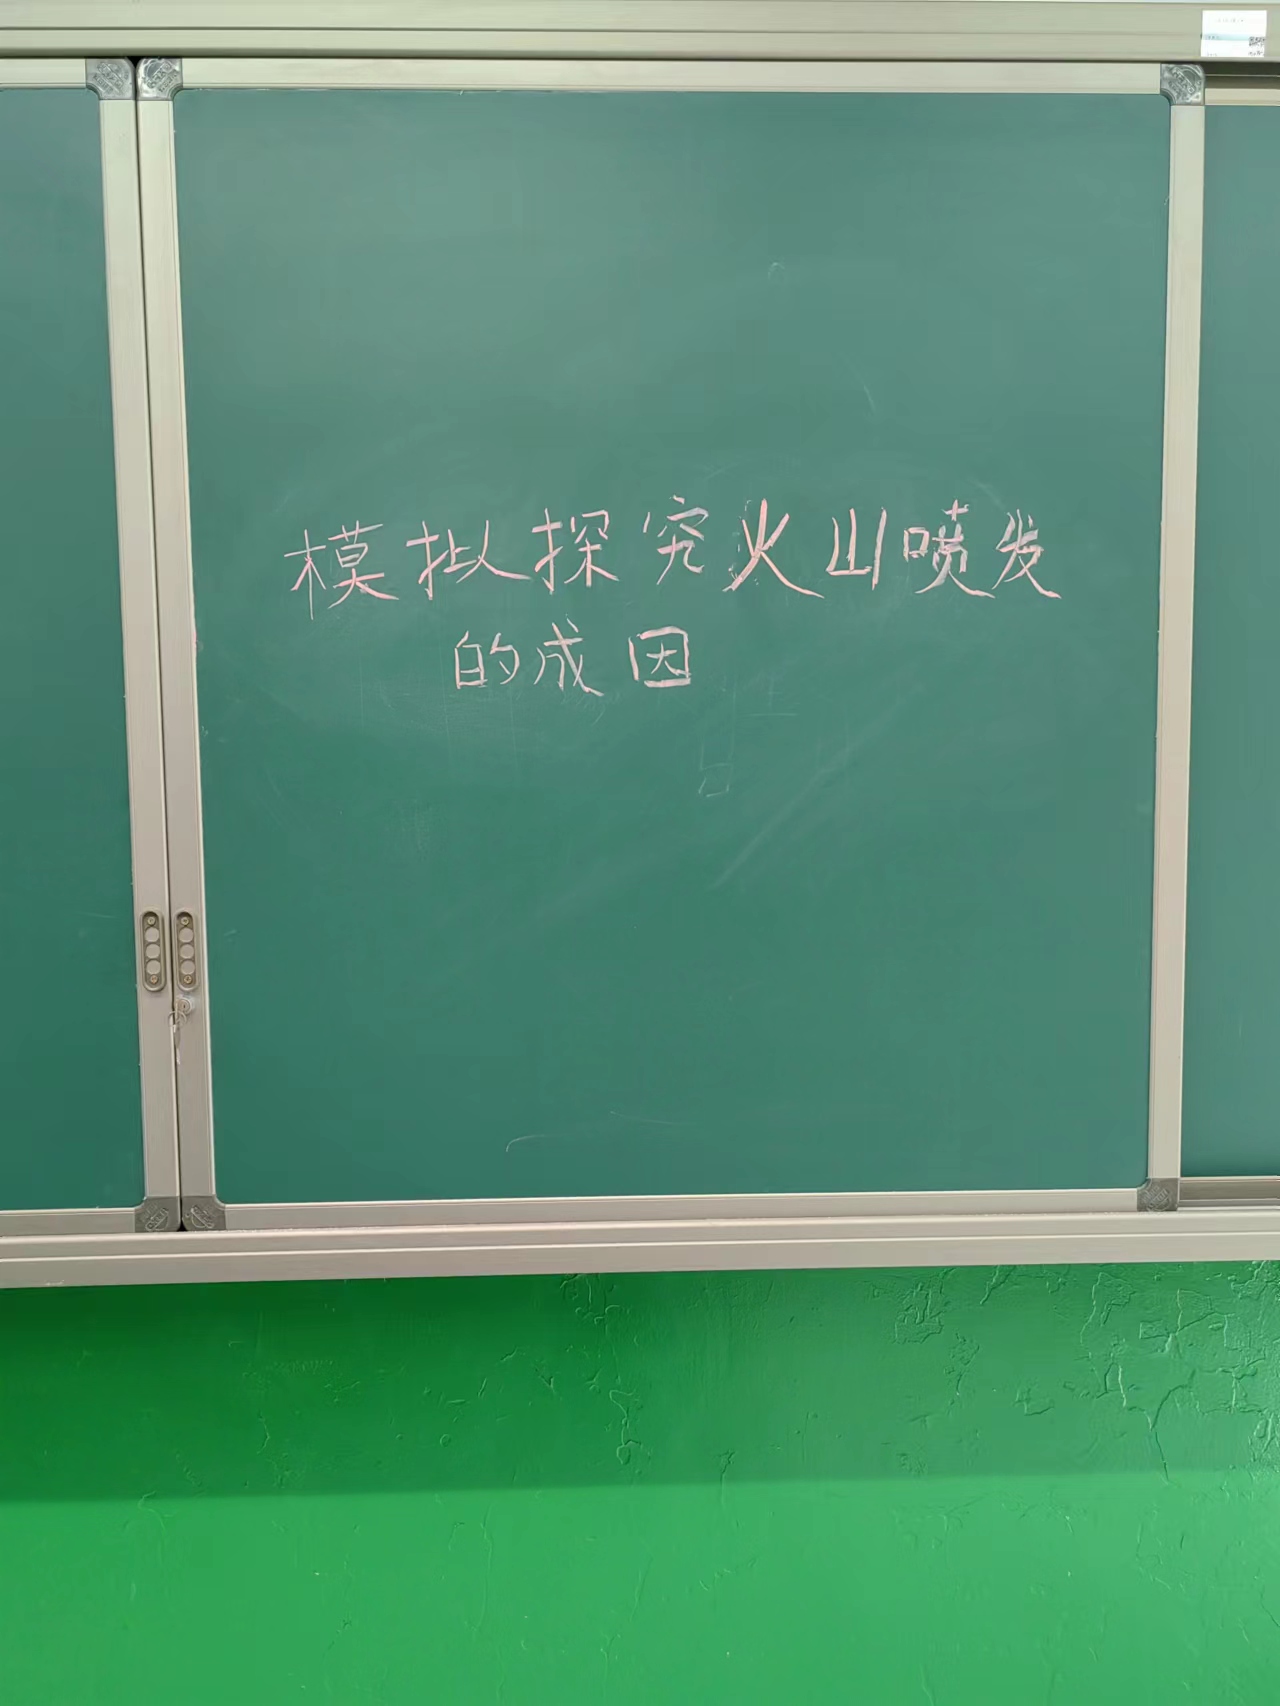 模拟探究火山喷发
的成因